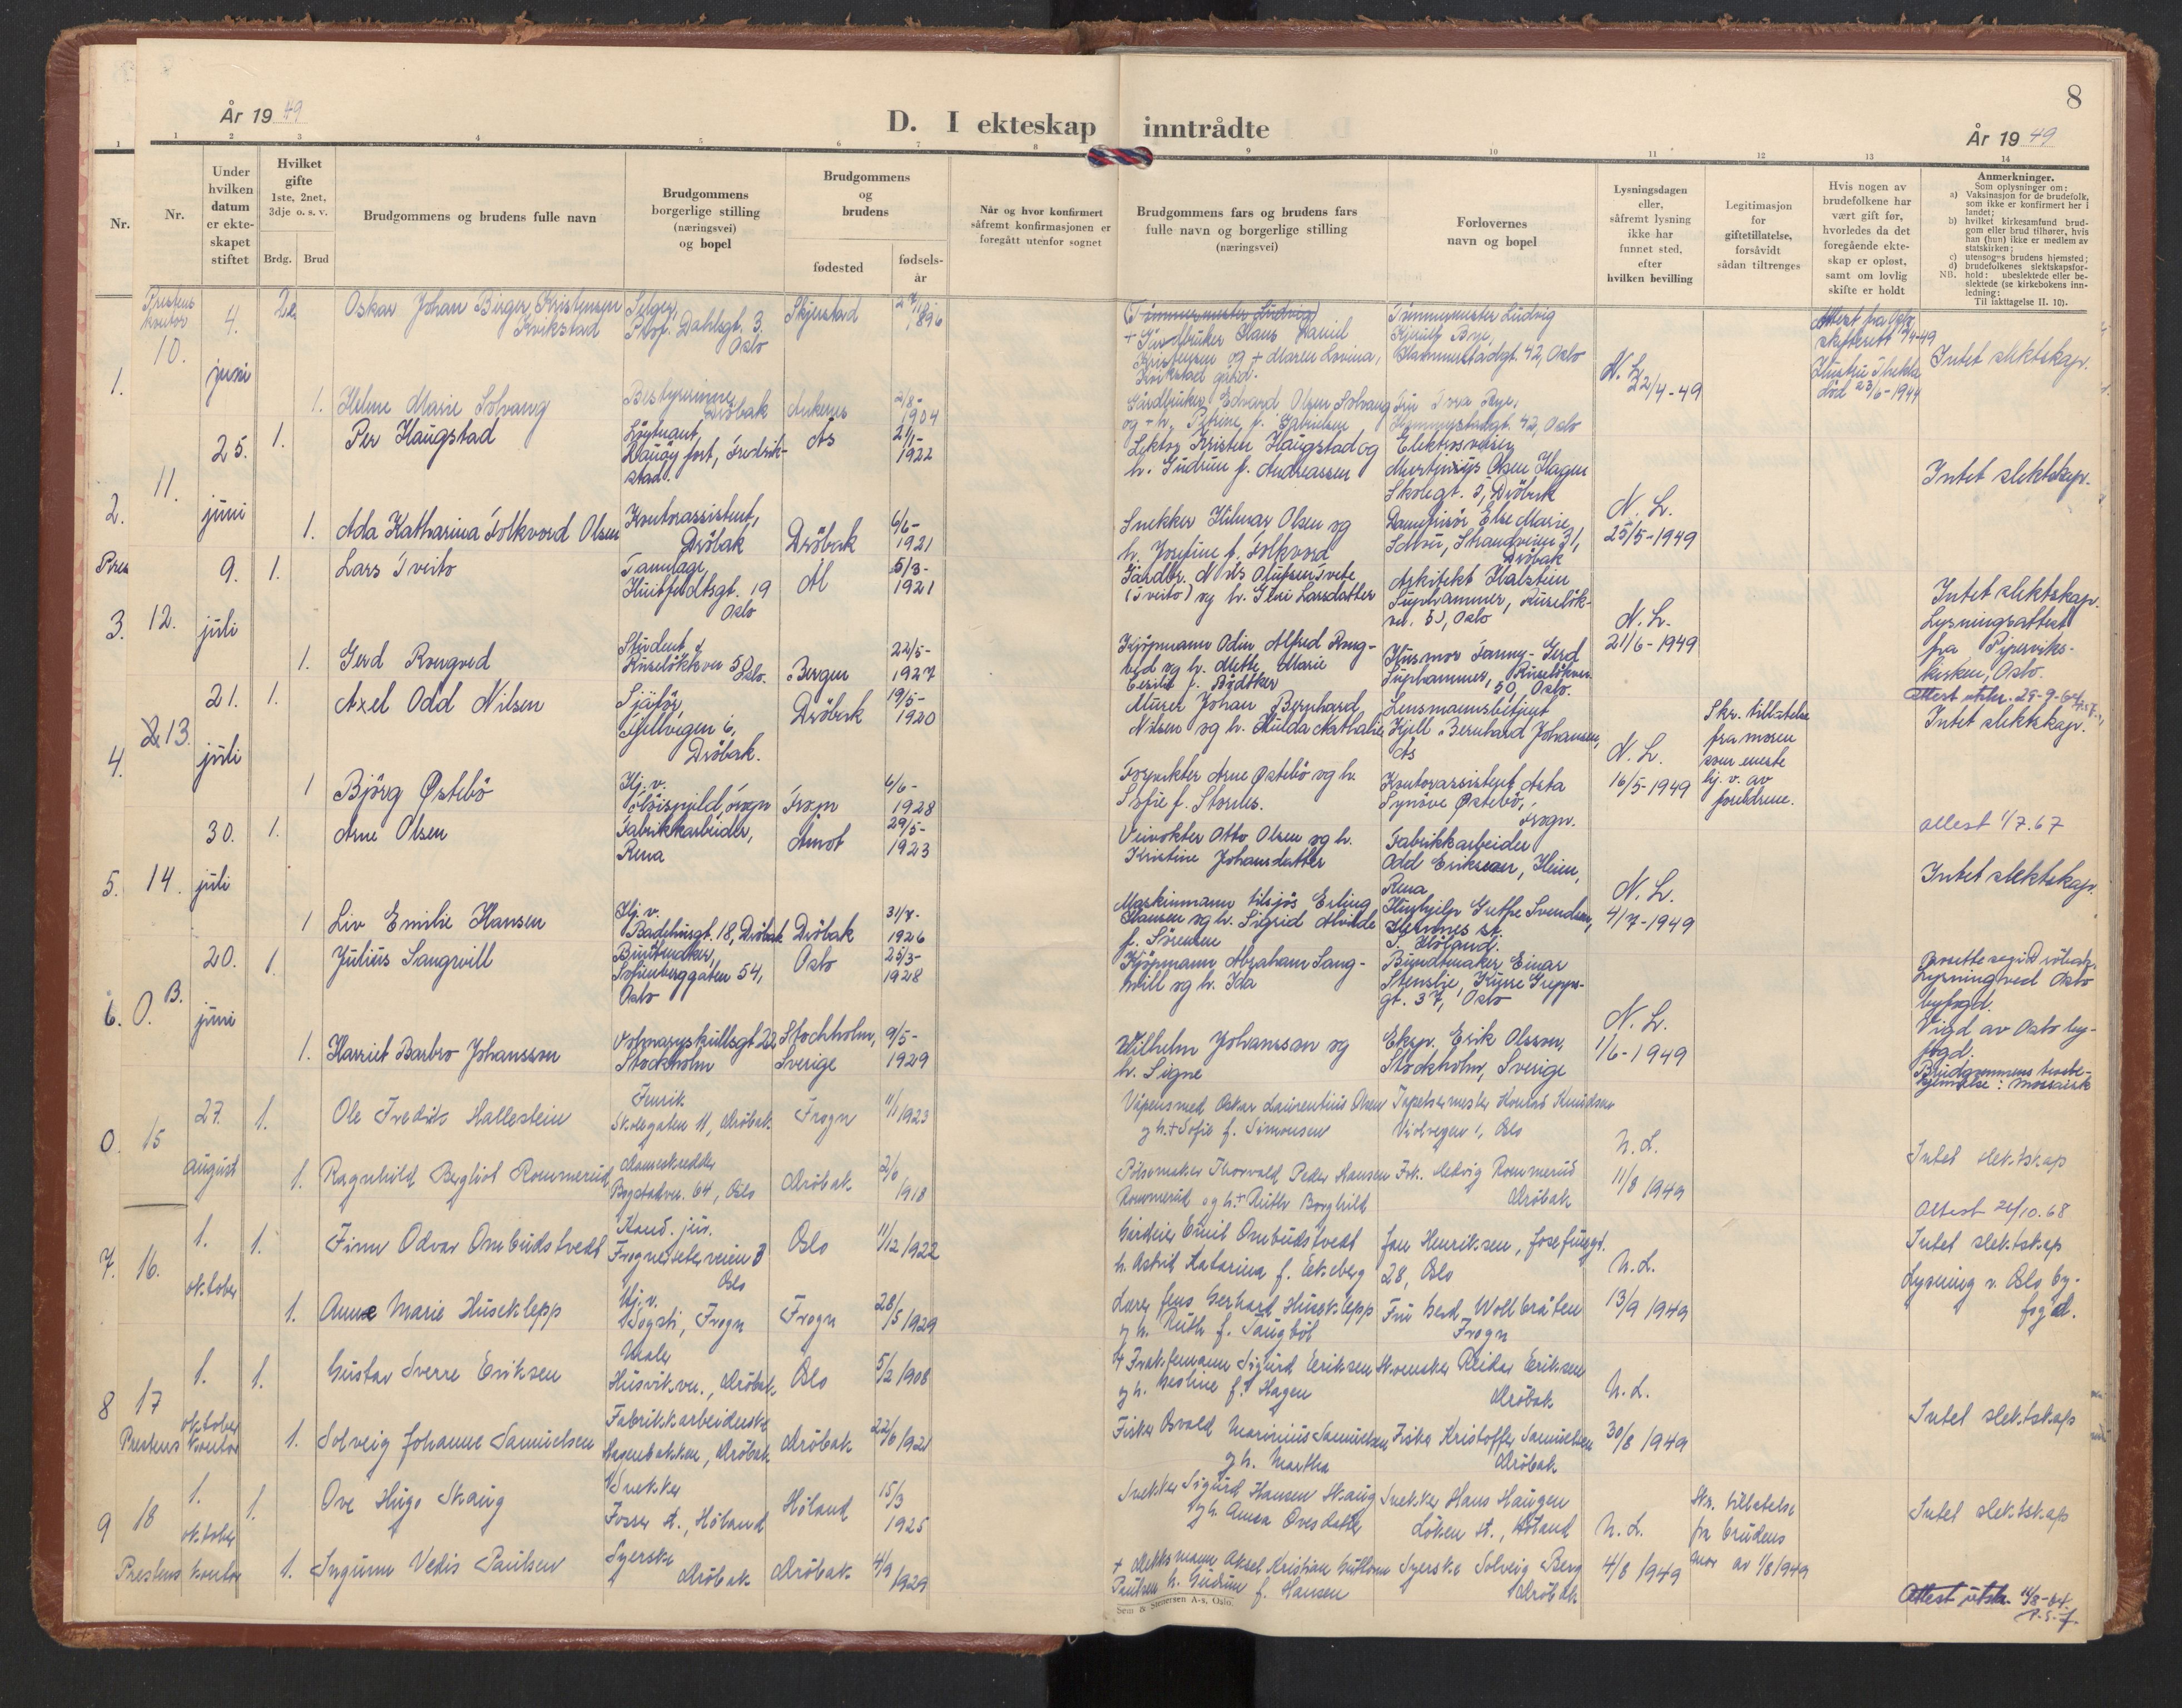 8
År 1949
D. I ekteskap inntrådte
År 1949
1 2 3 4 5 6 7 8 9 10 11 12 13 14
Nr.
Nr.
Under hvilken datum er ekteskapet stiftet
Hvilket gifte 1ste, 2net, 3dje o. s. v.
Brdg. Brud
Brudgommens og brudens fulle navn
Brudgommens borgerlige stilling (næringsvei) og bopel
Brudgommens og brudens
fødested
fødsels-år
Når og hvor konfirmert såfremt konfirmasjonen er foregått utenfor sognet
Brudgommens fars og brudens fars fulle navn og borgerlige stilling (næringsvei)
Forlovernes navn og bopel
Lysningsdagen eller, såfremt lysning ikke har funnet sted, efter hvilken bevilling
Legitimasjon for giftetillatelse, forsåvidt sådan tiltrenges
Hvis nogen av brudefolkene har vært gift før, hvorledes da det foregående ekteskap er opløst, samt om lovlig skifte er holdt
Anmerkninger.
Som oplysninger om:
a) Vaksinasjon for de brudefolk, som ikke er konfirmert her i landet;
b) hvilket kirkesamfund brudgom eller brud tilhører, hvis han (hun) ikke er medlem av statskirken;
c) utensogns brudens hjemsted;
d) brudefolkenes slektskapsforhold: ubeslektede eller beslektede (se kirkebokens innledning:
NB. Til iakttagelse II. 10).
1.
Prestens kontor
10. 4. juni 2. Oskar Johan Birger Kristensen Kvikstad
Selger, Prof. Dahlsgt. 3. Oslo
Skjerstad 27/11 1896
(Tømmermester Ludvig)
+ Gårdbruker Hans Daniel Kristensen og + Maren Lovina, Kvikstad gård.
Tømmermester Ludvig Kjerulf Bye, Hammerstadgt. 42, Oslo
N. L. 22/4-49
Attest fra Oslo skifterett
Hustru Thekla død 23/6-1944
Intet slektskap.
1. Helene Marie Solvang
Bestyrerinne, Drøbak
Ankenes 2/8-1904
Gårdbruker Edvard Olsen Solvang og + h. Petrine f. Gabrielsen
Fru Tora Bye, Hammerstadgt. 42, Oslo
2.
11. 25. juni 1. Per Haugstad
Løytnant, Rauøy fort, Fredrikstad.
Ås 21/1-1922
Lektor Kristen Haugstad og h. Gudrun f. Andreassen
Martinius Olsen Hagen Skolegt. 3, Drøbak
N. L. 25/5-1949
Intet slektskap.
1. Ada Katharina Folkvord Olsen
Kontorassistent, Drøbak
Drøbak 6/6-1921
Snekker Hilmar Olsen og h. Josefine f. Folkvord
Else Marie Strandveien 31, Drøbak
3.
Pres
12. 9. juli 1. Lars Tveito
Tannlæge, Huitfeldtsgt. 19 Oslo
Ål 5/3-1921
Gårdbr. Nils Olufsen Tvete (Tveito) og h. Guri Larsdatter
Arkitekt Halstein Suphammer, Ruseløkvei. 50, Oslo
N. L. 21/6-1949
Intet slektskap.
Lysningsattest fra Piperviks-kirken, Oslo.
1. Gerd Rongved
Student, Ruseløkkvn 50, Oslo.
Bergen 22/5-1927
Kjøpmann Odin Alfred Rongved og h. Mette Marie Cecilie f. Bødtker
Husmor Fanny-Gerd Suphammer, Ruseløkvn. 50, Oslo.
4.
13. 21. juli 1. Axel Odd Nilsen
Sjåfør, Fjellvegen 6, Drøbak.
Drøbak 19/5-1920
Murer Johan Bernhard Nilsen og h. Hulda Nathalie
Lensmannsbetjent Kjell Bernhard Johansen, Ås
N. L. 16/5-1949
Skr. tillatelse fra moren som eneste hj. v. av foreldrene.
Attest utstr. 29-9-64
Intet slektskap.
1 Bjørg Østebø
Hj. v. Frogn
Frogn 6/6-1928
Forpakter Arne Østebø og h. Sofie f. Stornes.
Kontorassistent Asta Synøve Østebø, Frogn.
5.
14. 30. juli 1. Arne Olsen
Fabrikkarbeider, Rena
Åmot 29/5-1923
Veivokter Otto Olsen og h. Kristine Johansdatter
Fabrikkarbeider Odd Eriksen, Heien, Rena
N. L. 4/7-1949
Attest 1/7.67
Intet slektskap.
1 Liv Emilie Hansen
Hj. v. Badehusgt. 18, Drøbak
Drøbak 31/7-1926
Maskinmann tilsjøs Erling Hansen og h. Sigrid Alvilde f. Sørensen
Hushjelp Grethe Svendsen, Hemnes st. S. Høland.
6.
O. B. 20. juni 1. Julius Sangwill
Buntmaker, Sofienberggaten 54, Oslo
Oslo 25/3-1928
Kjøpmann Abraham Sangwill og h. Ida
Bundtmaker Einar Stenslie, Kruse Greppsgt. 37, Oslo
N. L. 1/6-1949
Lysning ved Oslo byfogd.
Vigd av Oslo byfogd.
Brudgommens trosbekjennelse: mosaisk
1. Harriet Barbro Johansson
Stockholm
Stockholm, Sverige 9/5-1929
Wilhelm Johansson og h. Signe
Eksp. Erik Olsson, Stockholm, Sverige
0.
15 27. august 1. Ole Fredrik Hallestein
Fenrik Skolegaten 11, Drøbak
Frogn 11/1 1923
Våpensmed Oskar Laurentius Olsen og h. + Sofie f. Simonsen
Tapetsermester Konrad Knudsen Violvegen 1, Oslo
N. L. 11/8 1949
Intet slektskap
1. Ragnhild Bergliot Rommerud
Dameskredder Bogstadvn. 64, Oslo
Drøbak 1918
Pølsemaker Thorvald Peder Hansen Rommerud og h. + Ruth Borghild
Frk. Hedvig Rommerud Drøbak
7.
16. 1. oktober 1. Finn Odvar Ombudstvedt
Kand. jur. Frognerseterveien 3 Oslo
Oslo 11/12 1922
Gårdeier Emil Ombudstvedt h. Astrid Katarina f. Ekeberg
Jan Henriksen, Josefinegt. 28, Oslo
N. L. 13/9 1949
Attest 24/10.68
Intet slektskap
Lysning v. Oslo byfogd.
1. Anne Marie Huseklepp
Hj. v. Sogsti, Frogn
Frogn 28/5 1929
Lærer Jens Gerhard Huseklepp og h. Ruth f. Saugbøl
Fru Gerd Wollbråten Frogn
8
17 1. oktober 1. Gustav Sverre Eriksen
Prestens kontor
Maler Husvikvn., Drøbak
Oslo 5/2 1908
Sigurd Eriksen og h. Gesline f. Hagen
Skomaker Reidar Eriksen Drøbak
N. L. 30/8 1949
Intet slektskap
1. Solveig Johanne Samuelsen
Fabrikkarbeiderske Hagenbakken, Drøbak
Drøbak 22/6 1921
Fisker Osvald Marinius Samuelsen og h. Martha
Fisker Kristoffer Samuelsen Drøbak
9
18 1. oktober 1. Ove Hugo Skaug
Prestens kontor
Snekker Fosser st., Høland
Høland 15/3 1925
Snekker Sigurd Hansen Skaug og h. Anna Ovesdatter
Snekker Hans Haugen Løken st., Høland
N. L. 4/8 1949
Skr. tillatelse fra brudens mor av 1/8 1949
Intet slektskap
1. Ingunn Vedis Paulsen
Syerske Drøbak
Drøbak 4/9 1929
+ Dekksmann Aksel Kristian Guttorm Paulsen h. Gudrun f. Hansen
Syerske Solveig Berg Drøbak
Attest utstr. 14/8-64.
Sem & Stenersen A-s, Oslo.